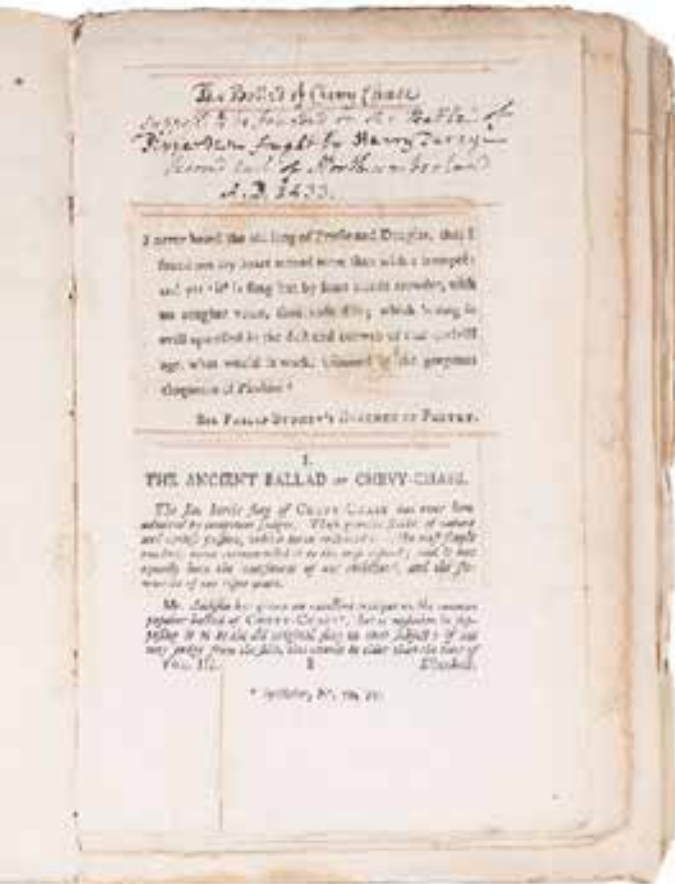 The Ballad of Chevy Chase
to be founded on the Battle of
fought by Harry Percy
second earl of Northumberland
A.D. 1433.
I never heard the old song of Percie and Douglas, that I
found not my heart moved more than with a trumpet:
and yet 'it' is sung but by some blinde crowder, with
no rougher voice, than rude stile; which being so
evill apparelled in the dust and cobweb of that uncivill
age, what would it work, trimmed in the gorgeous
eloquence of Pindare?
SIR PHILIP SYDNEY'S DEFENCE OF POETRY.
I.
THE ANCIENT BALLAD OF CHEVY-CHASE.
The fine heroic song of CHEVY-CHASE has ever been
admired by competent judges. Those genuine strokes of nature
and artless passion, which have endeared it to the most simple
readers, have recommended it to the most refined; and it has
equally been the amusement of our childhood, and the
of our riper years.
Mr. Addison has given an excellent critique on the
popular ballad of CHEVY-CHASE*, but is mistaken in
it to be the old original song on that subject: if one
may judge from the this cannot be older than the time of
VOL. B
* Spectator,